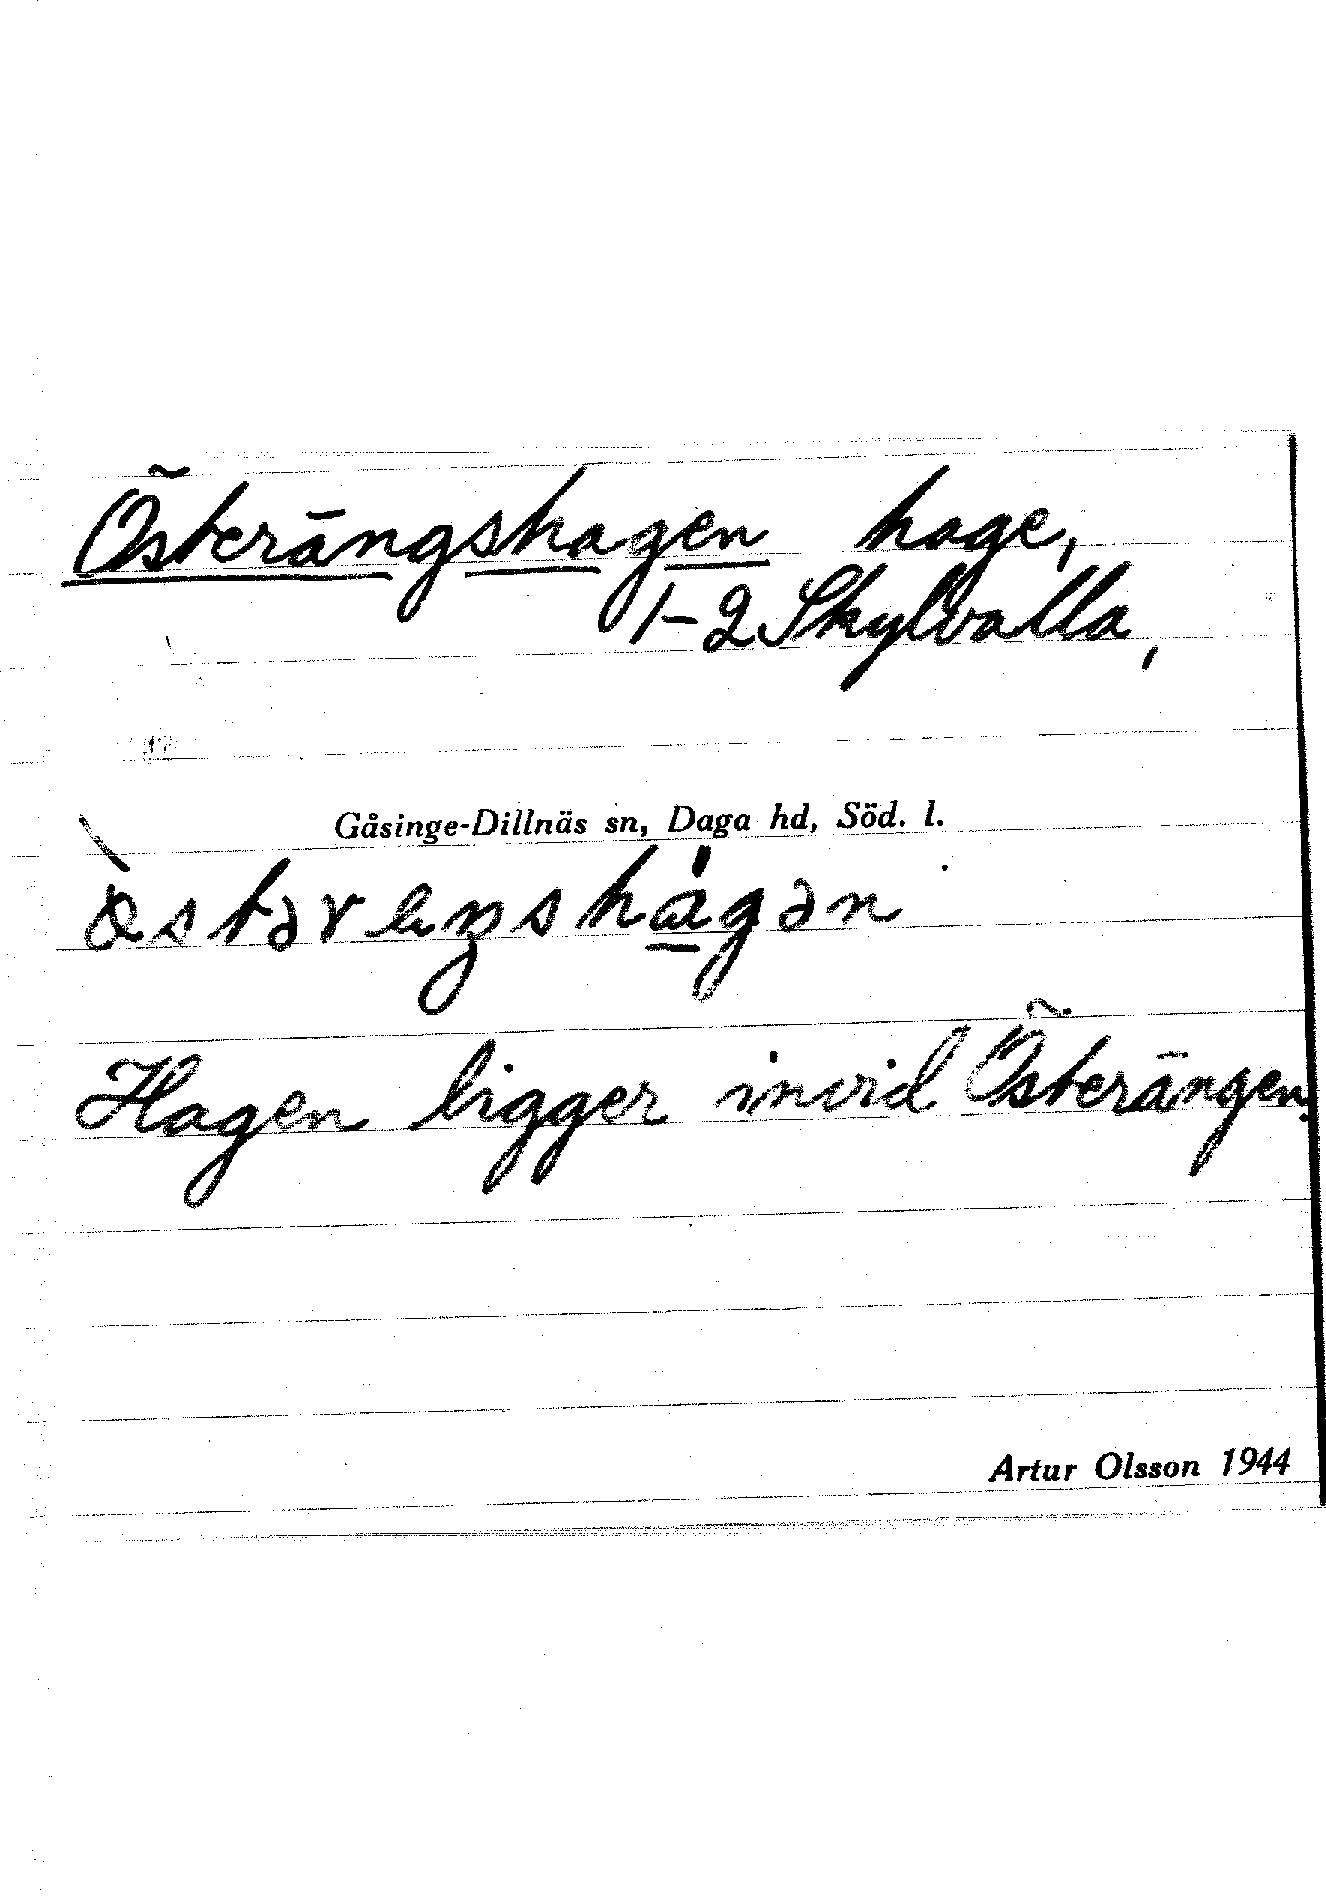 Österängshagen hage,
1-2 Skylvalla,
Gåsinge-Dillnäs sn, Daga hd, Söd. l.
Hagen ligger invid Österängen.
Artur Olsson 1944